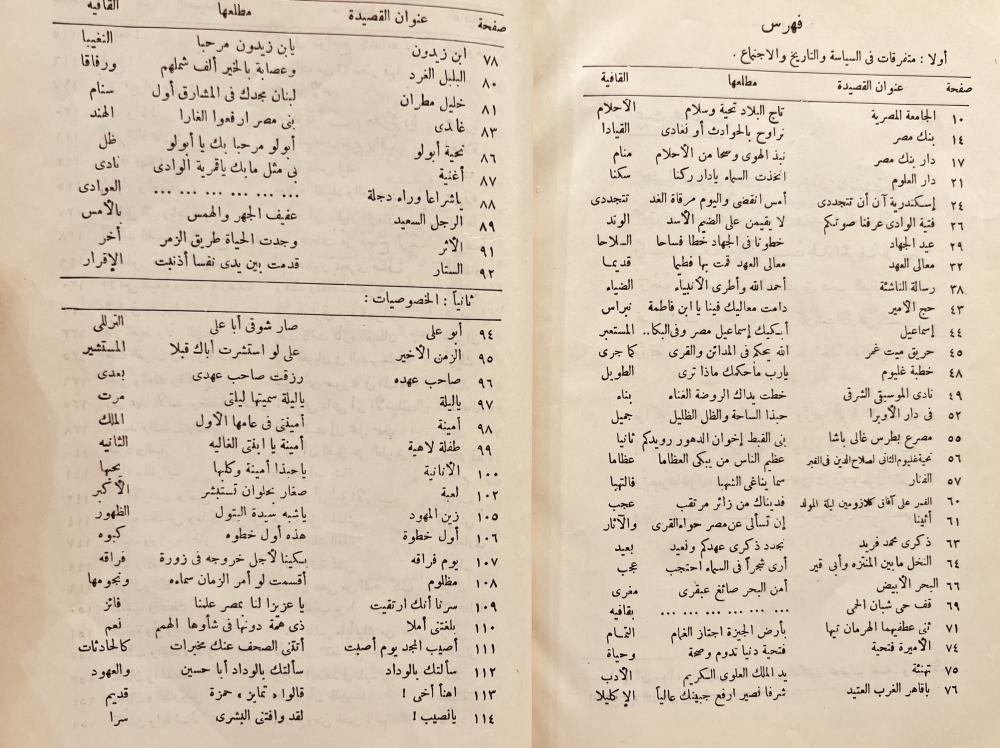 فهرس
أولا : متفرقات فى السياسة والتاريخ والاجتماع .
صفحة عنوان القصيدة مطلعها القافية
١٠ الجامعة المصرية تاج البلاد تحية وسلام الأحلام
١٤ بنك مصر نراوح بالحوادث أو نغادى القيادا
١٧ دار بنك مصر نبذ الهوى وصحا من الأحلام منام
٢١ دار العلوم اتخذت السماء يادار ركنا سكنا
٢٤ إسكندرية آن أن تتجددى أمس انقضى واليوم مرقاة الغد تتجددى
٢٦ فتية الوادى عرفنا صوتكم لا يقيمن على الضيم الأسد الوتد
٢٩ عيد الجهاد خطونا فى الجهاد خطا فساحا السلاحا
٣٢ معالى العهد معالى العهد قمت بها فطيما قديما
٣٨ رسالة الناشئة أحمد الله وأطرى الأنبياء الضياء
٤٣ حج الأمير دامت معاليك فينا يا ابن فاطمة نبراس
٤٤ إسماعيل أبكيك إسماعيل مصر وفى البكا.. المستعبر
٤٥ حريق ميت غمر الله يحكم فى المدائن والقرى كما جرى
٤٨ خطبة غليوم يارب ماحكمك ماذا ترى الطويل
٤٩ نادى الموسيقى الشرقى خطت يداك الروضة الغناء بناء
٥٢ فى دار الأوبرا حبذا الساحة والظل الظليل جميل
٥٥ مصرع بطرس غالى باشا بنى القبط إخوان الدهور رويدكم ثانيا
٥٦ تحية غليوم الثانى لصلاح الدين فى القبر عظيم الناس من يبكى العظاما عظاما
٥٧ الفنار سما يناغى الشهبا فالتهبا
٦٠ القمر على آفانى كلازومين ليلة المولد فديناك من زائر مرتقب عجب
٦١ أثينا إن تسألى عن مصر حواء القرى والآثار
٦٣ ذكرى محمد فريد نجدد ذكرى عهدكم ونعيد بعيد
٦٤ النخل مابين المنتزه وأبى قير أرى شجراً فى السماء احتجب عجب
٦٦ البحر الأبيض أمن البحر صائغ عبقرى مغرى
٦٩ قف حى شبان الحمى ... ... ... ... ... ... بقافيه
٧١ ثنى عطفيهما الهرمان تيها بأرض الجيزة اجتاز الغمام التمام
٧٤ الأميرة فتحية فتحية دنيا تدوم وصحة وحياة
٧٥ تهنئة يد الملك العلوى الكريم الأدب
٧٦ ياقاهر الغرب العتيد شرفا نصير ارفع جبينك عالياً الإكليلا
صفحة عنوان القصيدة مطلعها القافية
٧٨ ابن زيدون يابن زيدون مرحبا التغيبا
٨٠ البلبل الغرد وعصابة بالخير ألف شملهم ورفاقا
٨١ خليل مطران لبنان مجدك فى المشارق أول سنام
٨٣ غاندى بنى مصر ارفعوا الغارا الهند
٨٦ تحية أبولو أبولو مرحبا بك يا أبولو ظل
٨٧ أغنية بى مثل مابك ياقمرية الوادى نادى
٨٨ ياشراعا وراء دجلة ... ... ... ... ... ... العوادى
٨٩ الرجل السعيد عفيف الجهر والهمس بالأمس
٩١ الأثر وجدت الحياة طريق الزمر أخر
٩٢ الستار قدمت بين يدى نفسا أذنبت الإقرار
ثانياً : الخصوصيات :
٩٤ أبو على صار شوقى أبا على الترللى
٩٥ الزمن الأخير على لو استشرت أباك قبلا المستشير
٩٦ صاحب عهده رزقت صاحب عهدى بعدى
٩٧ ياليلة ياليلة سميتها ليلتى مرت
٩٨ أمينة أمينتى فى عامها الأول الملك
٩٩ طفلة لاهية أمينة يا ابنتى الغاليه الثانيه
١٠٠ الأنانية ياحبذا أمينة وكلبها يحبها
١٠٢ لعبة صغار بحلوان تستبشر الأكبر
١٠٥ زين المهود ياشبه سيدة البتول الطهور
١٠٦ أول خطوة هذه أول خطوه كبوه
١٠٧ يوم فراقه بكينا لأجل خروجه فى زورة فراقه
١٠٨ مظلوم أقسمت لو أمر الزمان سماءه ونجومها
١٠٩ سرنا أنك ارتقيت يا عزيزا لنا بمصر علمنا فائز
١١٠ بلغتنى أملا ذى همة دونها فى شأوها الهمم نعم
١١١ أصيب المجد يوم أصبت أتتنى الصحف عنك مخبرات كالحادثات
١١٢ سألتك بالوداد سألتك بالوداد أبا حسين والعهود
١١٣ اهنأ أخى ! قالوا « تمايز » حمزة قديم
١١٤ يانصيب ! لقد وافتنى البشرى سرا